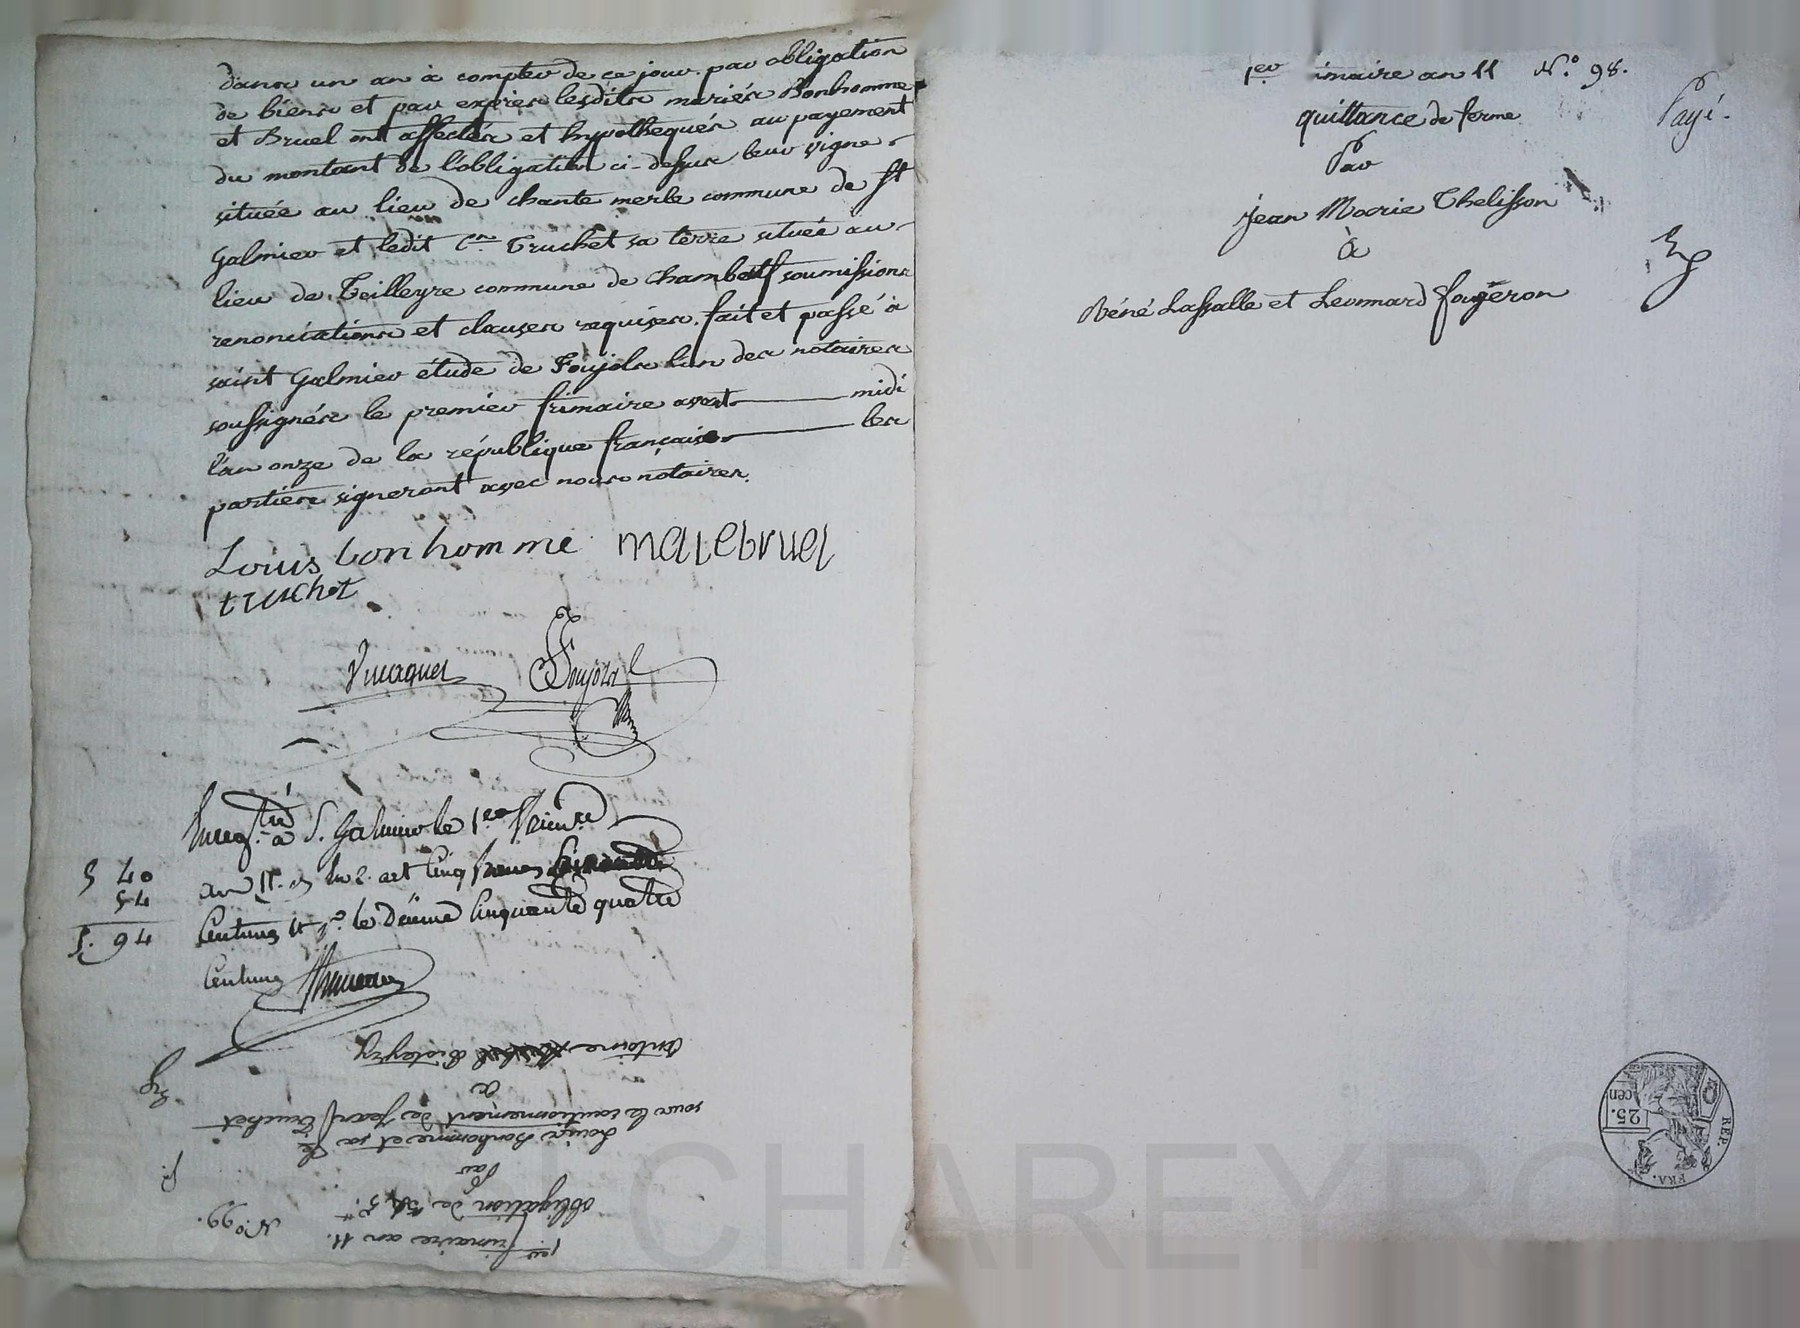 dans un an à compter de ce jour. par obligation
de biens et par exprès lesdits mariés Bonhomme
et Bruel ont affectés et hypothequés au payement
du montant de l'obligation ci-dessus leur vigne
située au lieu de chante merle commune de St
Galmier et ledit Cen Truchet sa terre située au
lieu de Teilleyre commune de Chambeuf soumissions
renonciations et clauses requises. fait et passé à
saint Galmier étude de Foujols l'un des notaires
soussignés le premier frimaire avant midi
l'an onze de la république française les
parties signeront avec nous notaires.
Louis bonhomme mariebruel
truchet
Foujols
Enregtré à St. Galmier le 1er frimre
5 40 an 11. cinq francs
54 Centimes le dixme cinquante quatre
5. 94
Centimes
Antoine
à
sous le cautionnement de Jean Truchet
Louis Bonhomme et sa fe
Par
obligation de
1er frimaire an 11. N.o 99.
1er imaire an 11 N.o 98.
quittance de ferme Payé.
Par
Jean Marie Thelisson
à
Réné Lassalle et Leonnard fougeron
REP. FRA.
25. cen
CHAREYRON